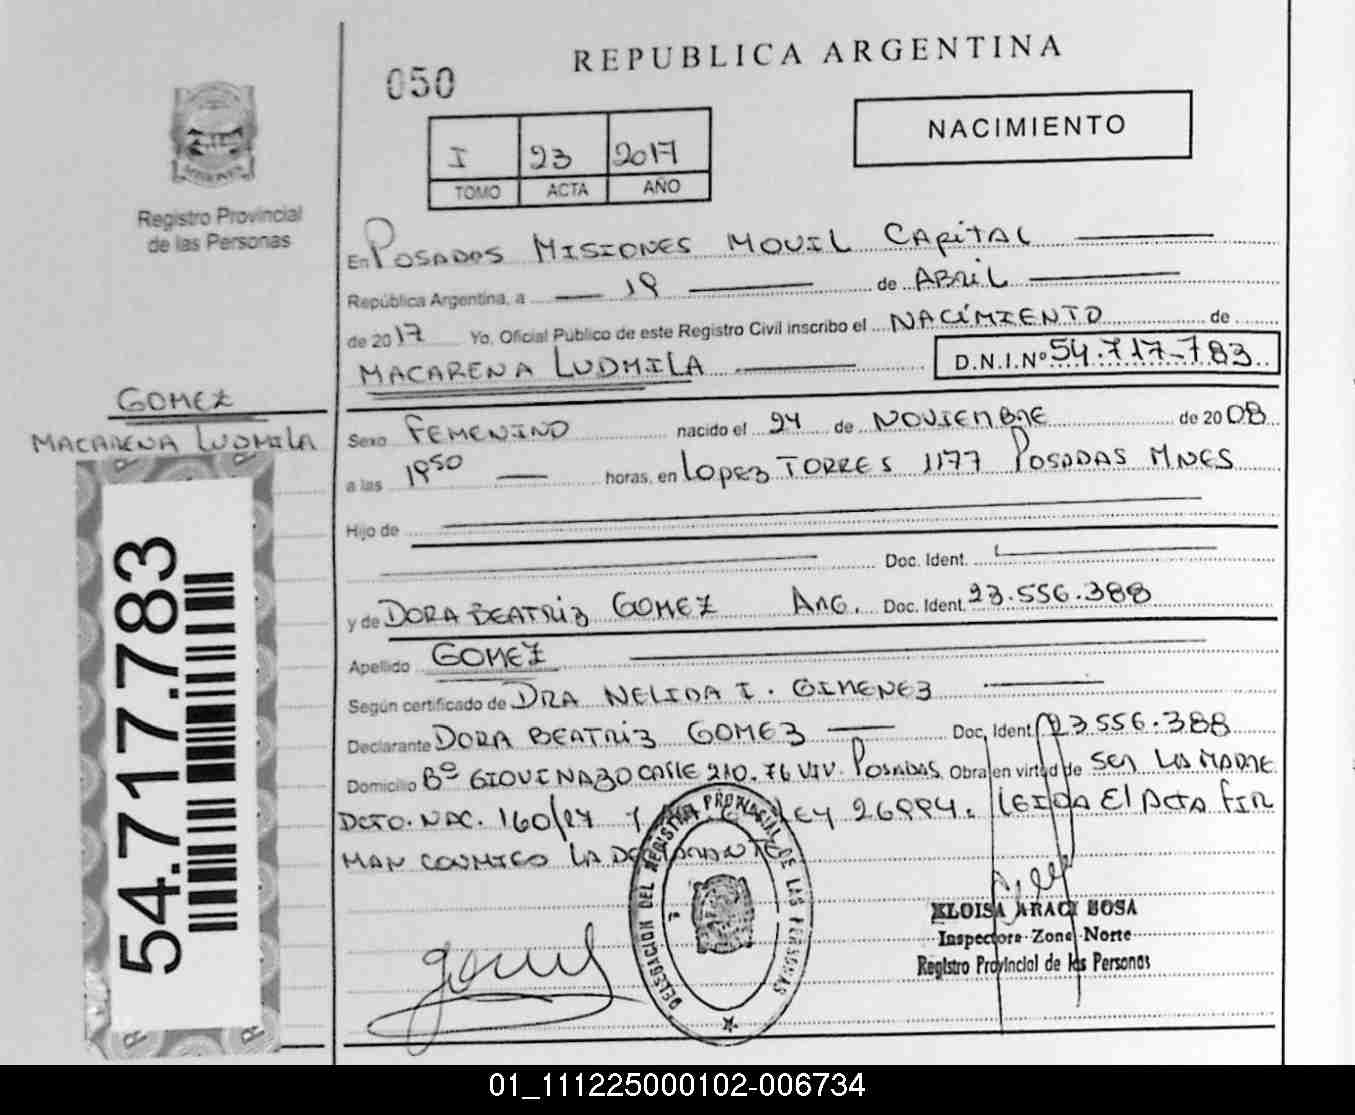 REPUBLICA ARGENTINA
050
NACIMIENTO
I 23 2017
TOMO ACTA AÑO
MISIONES
Registro Provincial
de las Personas
En POSADAS MISIONES MOVIL CAPITAL
República Argentina, a 19 de ABRIL
de 2017 Yo, Oficial Público de este Registro Civil inscribo el NACIMIENTO de
MACARENA LUDMILA D.N.I.Nº 54.717.783
GOMEZ
MACARENA LUDMILA
Sexo FEMENINO nacido el 24 de NOVIEMBRE de 2008
a las 1950 horas, en LOPEZ TORRES 1177 POSADAS MNES
Hijo de
Doc. Ident.
y de DORA BEATRIZ GOMEZ ARG. Doc. Ident. 23.556.388
Apellido GOMEZ
Según certificado de DRA NELIDA I. GIMENEZ
Declarante DORA BEATRIZ GOMEZ Doc. Ident. 23.556.388
Domicilio Bº GIOVINAZO CALLE 210. 76 VIV. POSADAS Obra en virtud de SER LA MADRE
DCTO. NAC. 160/17 LEY 26994. LEIDA EL ACTA FIR
MAN CONMIGO LA DECLARANTE
54.717.783
DELEGACION DEL REGISTRO PROVINCIAL DE LAS PERSONAS
ELOISA ARACI SOSA
Inspectora Zona Norte
Registro Provincial de las Personas
01_111225000102-006734